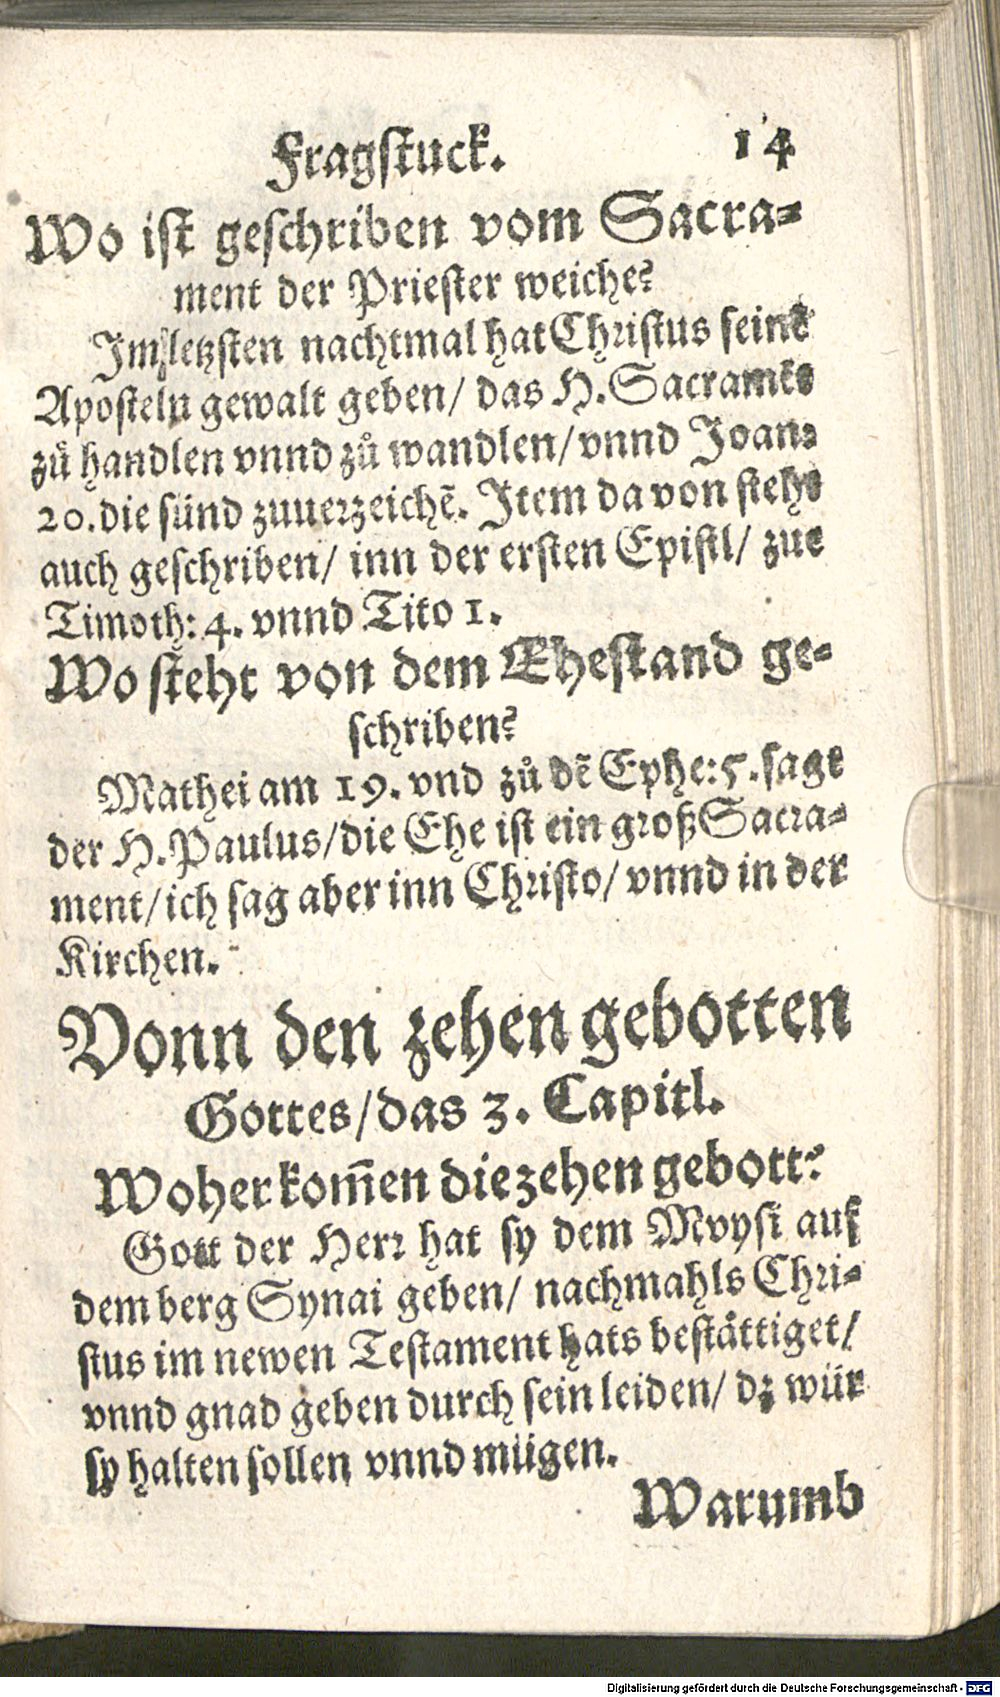 Fragſtuck. 14
Wo iſt geſchriben vom Sacra-
ment der Prieſter weiche?
Im letzſten nachtmal hat Chriſtus ſeinē
Apoſteln gewalt geben/ das H. Sacramēts
zů handlen vnnd zů wandlen/ vnnd Joan:
20. die ſünd zuuerzeichē. Item da von ſteht
auch geſchriben/ inn der erſten Epiſtl/ zue
Timoth: 4. vnnd Tito 1.
Wo ſteht von dem Eheſtand ge-
ſchriben?
Mathei am 19. vnd zů dē Ephe: 5. ſagt
der H. Paulus/ die Ehe iſt ein groß Sacra-
ment/ ich ſag aber inn Chriſto/ vnnd in der
Kirchen.
Vonn den zehen gebotten
Gottes/ das 3. Capitl.
Woher kom̄en die zehen gebott?
Gott der Herr hat ſy dem Moyſi auf
dem berg Synai geben/ nachmahls Chri-
ſtus im newen Teſtament hats beſtättiget/
vnnd gnad geben durch ſein leiden/ dz wür
ſy halten ſollen vnnd mügen.
Warumb
Digitalisierung gefördert durch die Deutsche Forschungsgemeinschaft - DFG